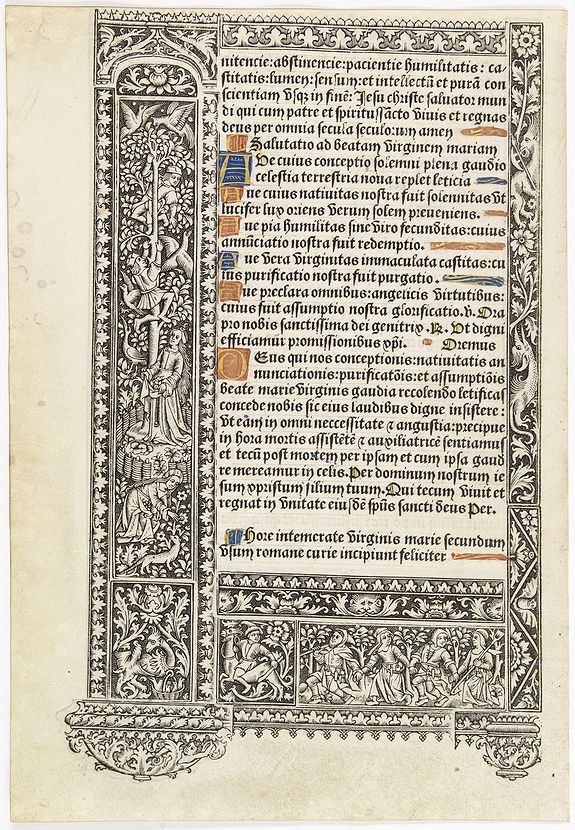 nitencie: abstinencie: pacientie humilitatis: ca
stitatis: lumen: sensum: et intellectū et purā con
scientiam vsqꝫ in finē: Jesu christe saluator mun
di qui cum patre et spiritu sācto viuis et regnas
deus per omnia secula seculorum amen
Salutatio ad beatam virginem mariam
AUe cuius conceptio solemni plena gaudio
celestia terrestria noua replet leticia
Aue cuius natiuitas nostra fuit solennitas vt
lucifer lux oriens verum solem preueniens.
Aue pia humilitas sine viro fecunditas: cuius
annūciatio nostra fuit redemptio.
Aue vera virginitas immaculata castitas: cu
ius purificatio nostra fuit purgatio.
Aue preclara omnibus: angelicis virtutibus:
cuius fuit assumptio nostra glorificatio. ṽ. Ora
pro nobis sanctissima dei genitrix. R. Vt digni
efficiamur promissionibus xp̄i. Oremus
DEus qui nos conceptionis: natiuitatis an
nunciationis: purificatōis: et assumptiōis
beate marie virginis gaudia recolendo letificas
concede nobis sic eius laudibus digne insistere:
vt eā in omni neccessitate ⁊ angustia: precipue
in hora mortis assistētē ⁊ auxiliatricē sentiamus
et tecū post mortem per ipsam et cum ipsa gaud
re mereamur in celis. Per dominum nostrum ie
sum xpristum filium tuum. Qui tecum viuit et
regnat in vnitate eiusdē sp̄us sancti deus Per.
Hore intemerate virginis marie secundum
vsum romane curie incipiunt feliciter